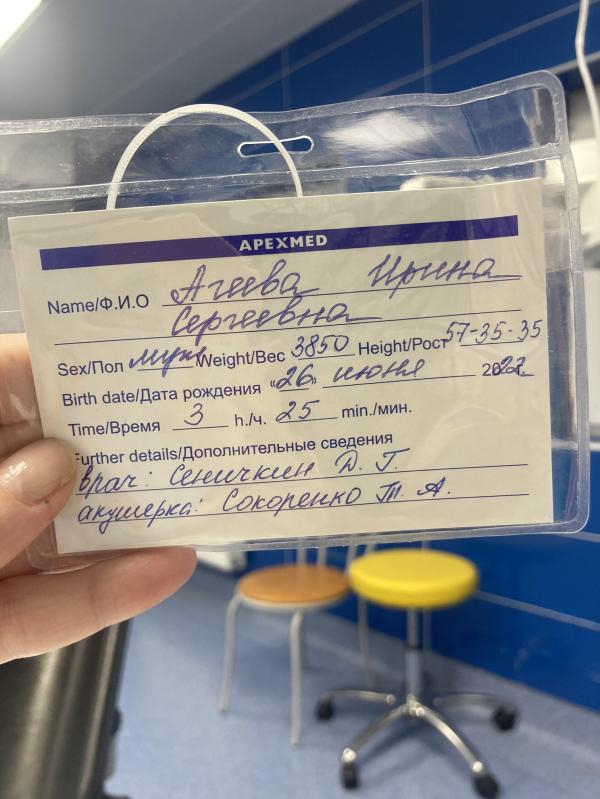 APEXMED
Name/Ф.И.О Агеева Ирина
Сергеевна
Sex/Пол муж Weight/Вес 3850 Height/Рост 57-35-35
Birth date/Дата рождения «26» июня 2022г.
Time/Время 3 h./ч. 25 min./мин.
Further details/Дополнительные сведения
врач: Сеничкин Д. Г.
акушерка: Сокоренко Т. А.